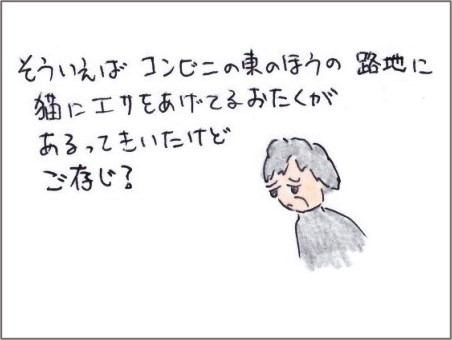 そういえば コンビニの東のほうの 路地に
猫にエサをあげてるおたくが
あるってきいたけど
ご存じ?